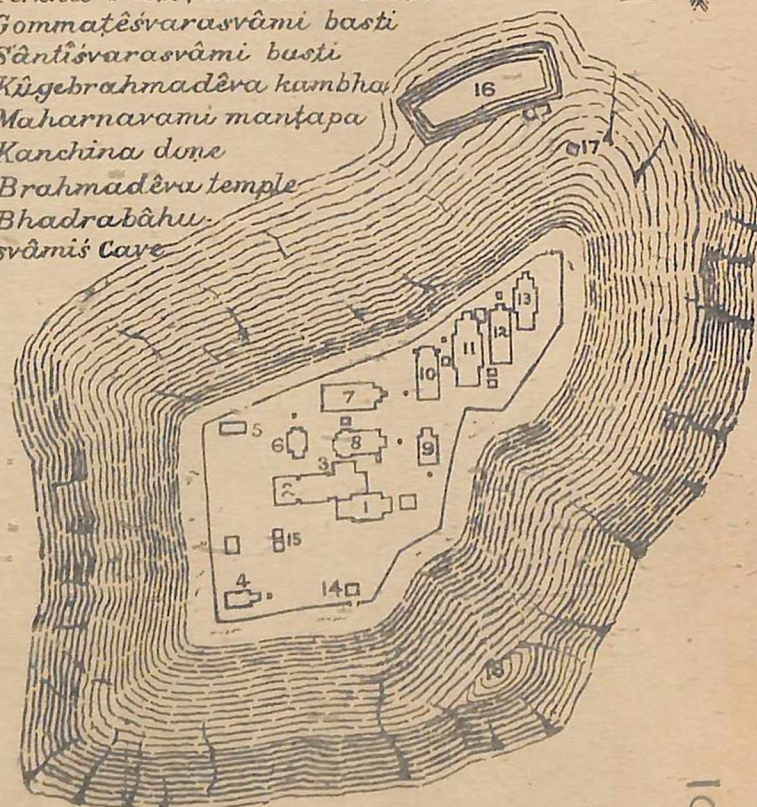 Gommaṭêśvarasvâmi basti
Sântîśvarasvâmi busti
Kûgebrahmadêva kambha
Maharnavami manṭapa
Kanchina done
Brahmadêva temple
Bhadrabâhu-
svâmiś Cave
16
17
13
12
11
10
7
5
6
8
9
3
2
1
15
4
14
18